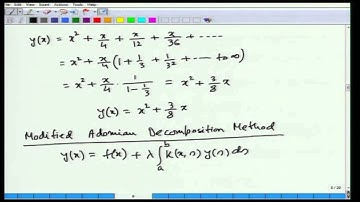 y(x) = x² + x/4 + x/12 + x/36 + -----
= x² + x/4 (1 + 1/3 + 1/3² + --- to ∞)
= x² + x/4 · 1/(1 - 1/3) = x² + 3/8 x
y(x) = x² + 3/8 x
Modified Adomian Decomposition Method
y(x) = f(x) + λ ∫ₐᵇ K(x, s) y(s) ds